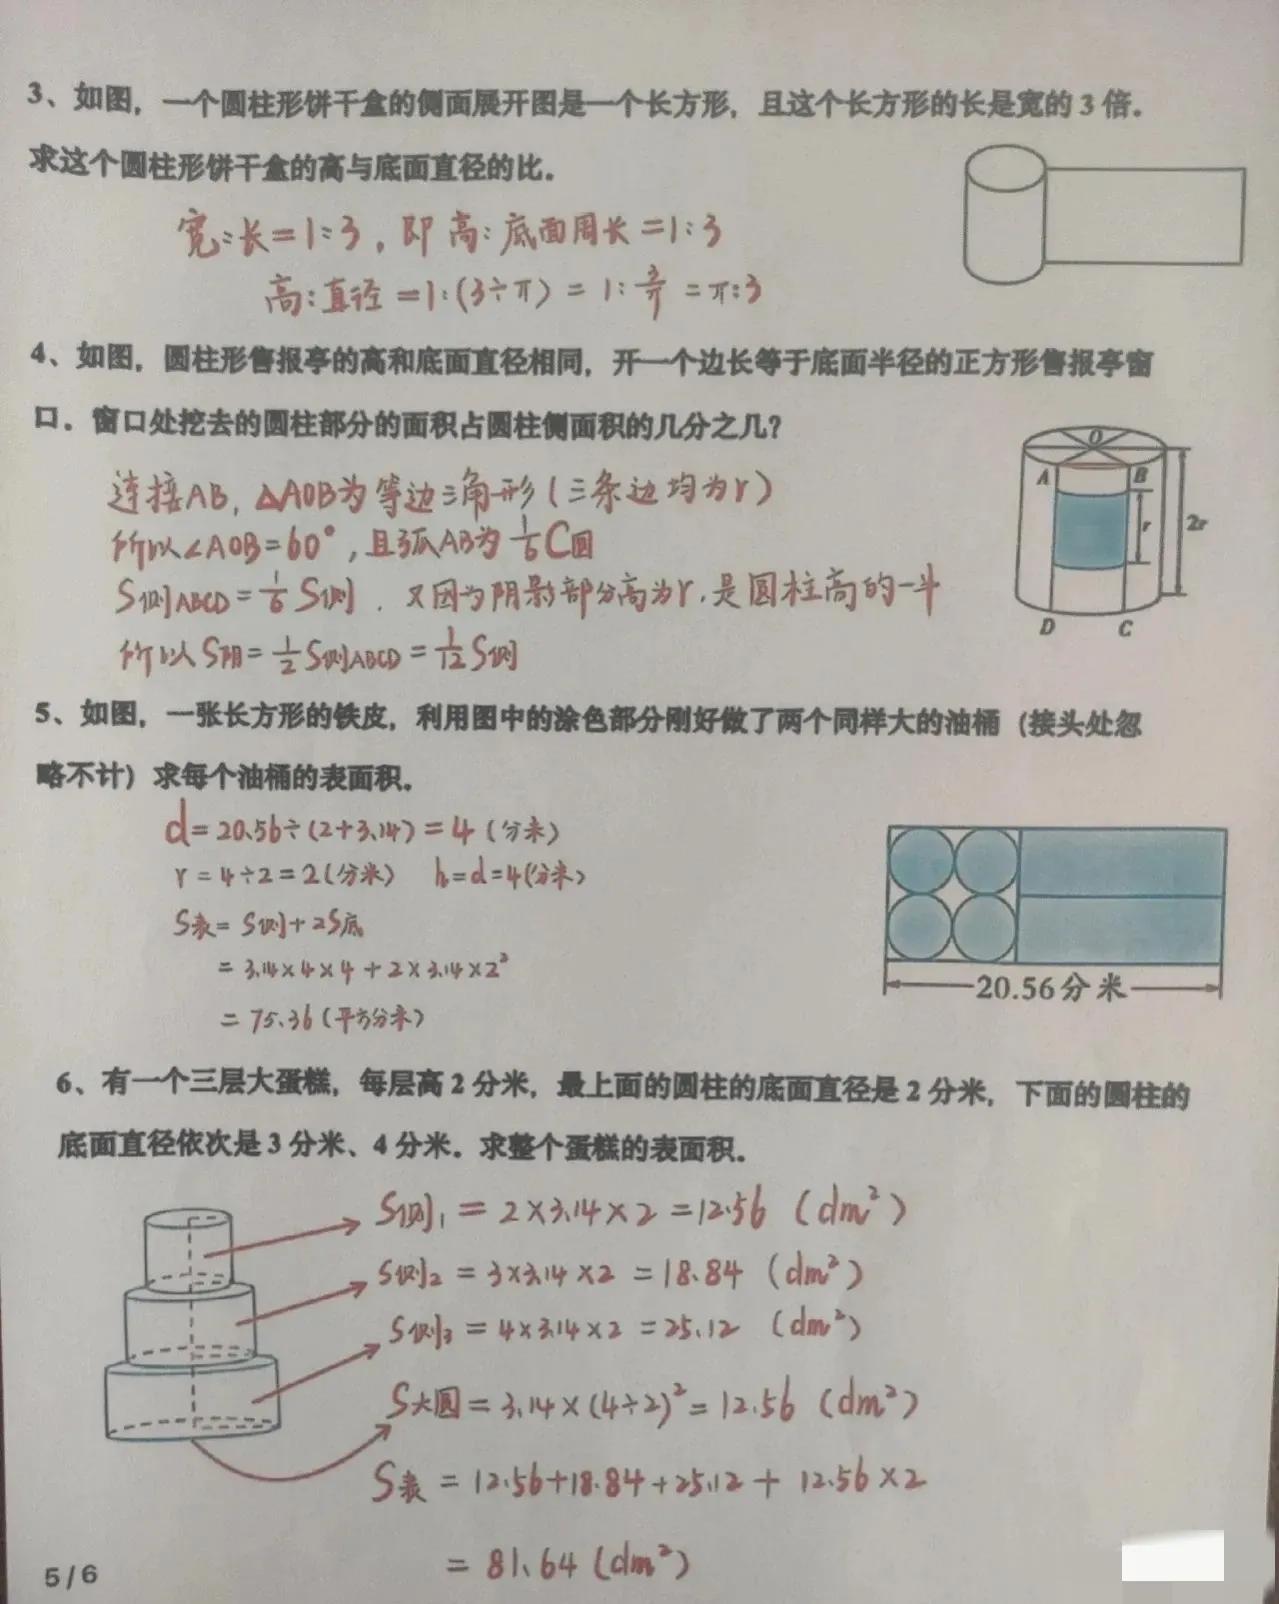 3、如图，一个圆柱形饼干盒的侧面展开图是一个长方形，且这个长方形的长是宽的 3 倍．
求这个圆柱形饼干盒的高与底面直径的比．
宽:长=1:3，即高:底面周长=1:3
高:直径=1:(3÷π)=1:3/π=π:3
4、如图，圆柱形售报亭的高和底面直径相同，开一个边长等于底面半径的正方形售报亭窗
口．窗口处挖去的圆柱部分的面积占圆柱侧面积的几分之几?
O
A B
r 2r
D C
连接AB，△AOB为等边三角形(三条边均为r)
所以∠AOB=60°，且弧AB为1/6C圆
S侧ABCD=1/6S侧．又因为阴影部分高为r，是圆柱高的一半
所以S阴=1/2S侧ABCD=1/12S侧
5、如图，一张长方形的铁皮，利用图中的涂色部分刚好做了两个同样大的油桶（接头处忽
略不计）求每个油桶的表面积．
d=20.56÷(2+3.14)=4(分米)
r=4÷2=2(分米) h=d=4(分米)
S表=S侧+2S底
=3.14×4×4+2×3.14×2²
=75.36(平方分米)
20.56分米
6、有一个三层大蛋糕，每层高 2 分米，最上面的圆柱的底面直径是 2 分米，下面的圆柱的
底面直径依次是 3 分米、4 分米．求整个蛋糕的表面积．
S侧1=2×3.14×2=12.56(dm²)
S侧2=3×3.14×2=18.84(dm²)
S侧3=4×3.14×2=25.12(dm²)
S大圆=3.14×(4÷2)²=12.56(dm²)
S表=12.56+18.84+25.12+12.56×2
=81.64(dm²)
5/6